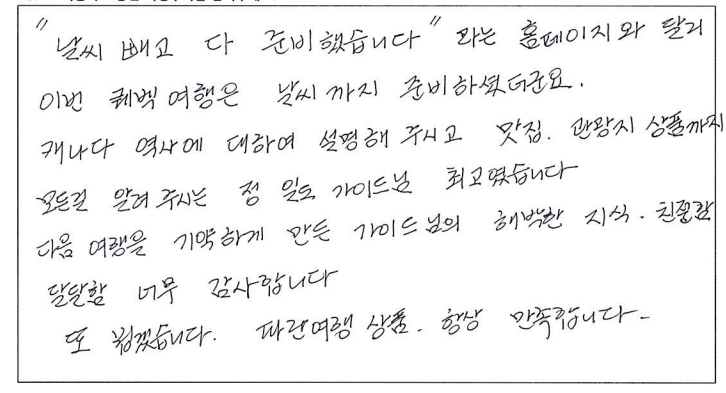 "날씨 빼고 다 준비했습니다" 라는 홈페이지와 달리
이번 퀘벡여행은 날씨까지 준비하셨더군요.
캐나다 역사에 대하여 설명해 주시고 맛집. 관광지 상품까지
모든걸 알려 주시는 정 일도 가이드님 최고였습니다
다음 여행을 기약하게 만든 가이드님의 해박한 지식. 친절함
달달함 너무 감사합니다
또 뵙겠습니다. 파란여행 상품. 항상 만족합니다-